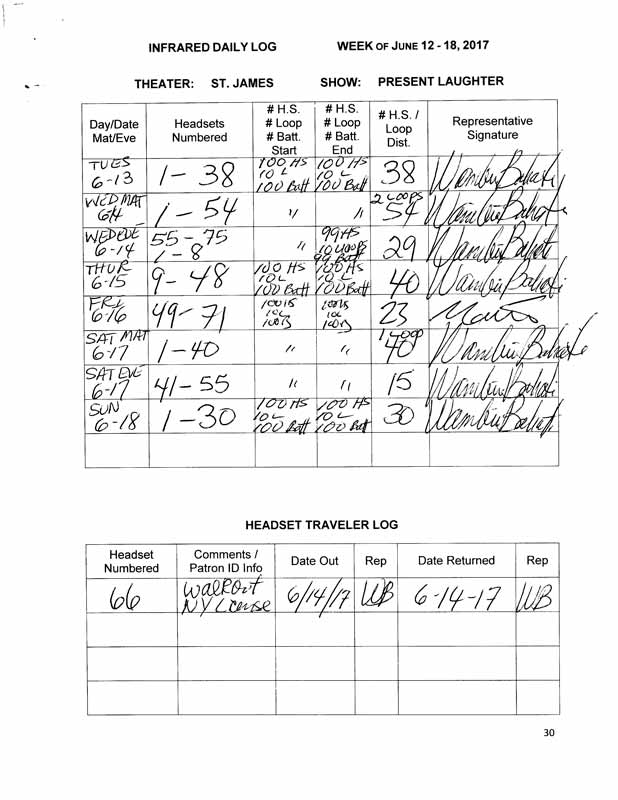 INFRARED DAILY LOG WEEK OF JUNE 12 - 18, 2017
THEATER: ST. JAMES SHOW: PRESENT LAUGHTER
Day/Date Mat/Eve Headsets Numbered # H.S. # Loop # Batt. Start # H.S. # Loop # Batt. End # H.S. / Loop Dist. Representative Signature
TUES 6-13 1-38 100 HS 10 L 100 Batt 100 HS 10 L 100 Batt 38
WED MAT 6-14 1-54 " " 2 Loops 54
WED EVE 6-14 55-75 1-8 " 99 HS 10 Loops 99 Batt 29
THUR 6-15 9-48 100 HS 10L 100 Batt 100 HS 10 L 100 Batt 40
FRI 6-16 49-71 23
SAT MAT 6-17 1-40 " " 1 Loop 40
SAT EVE 6-17 41-55 " " 15
SUN 6-18 1-30 100 HS 10 L 100 Batt 100 HS 10 L 100 Batt 30
HEADSET TRAVELER LOG
Headset Numbered Comments / Patron ID Info Date Out Rep Date Returned Rep
66 Walkout NY License 6/14/17 WB 6-14-17 WB
30